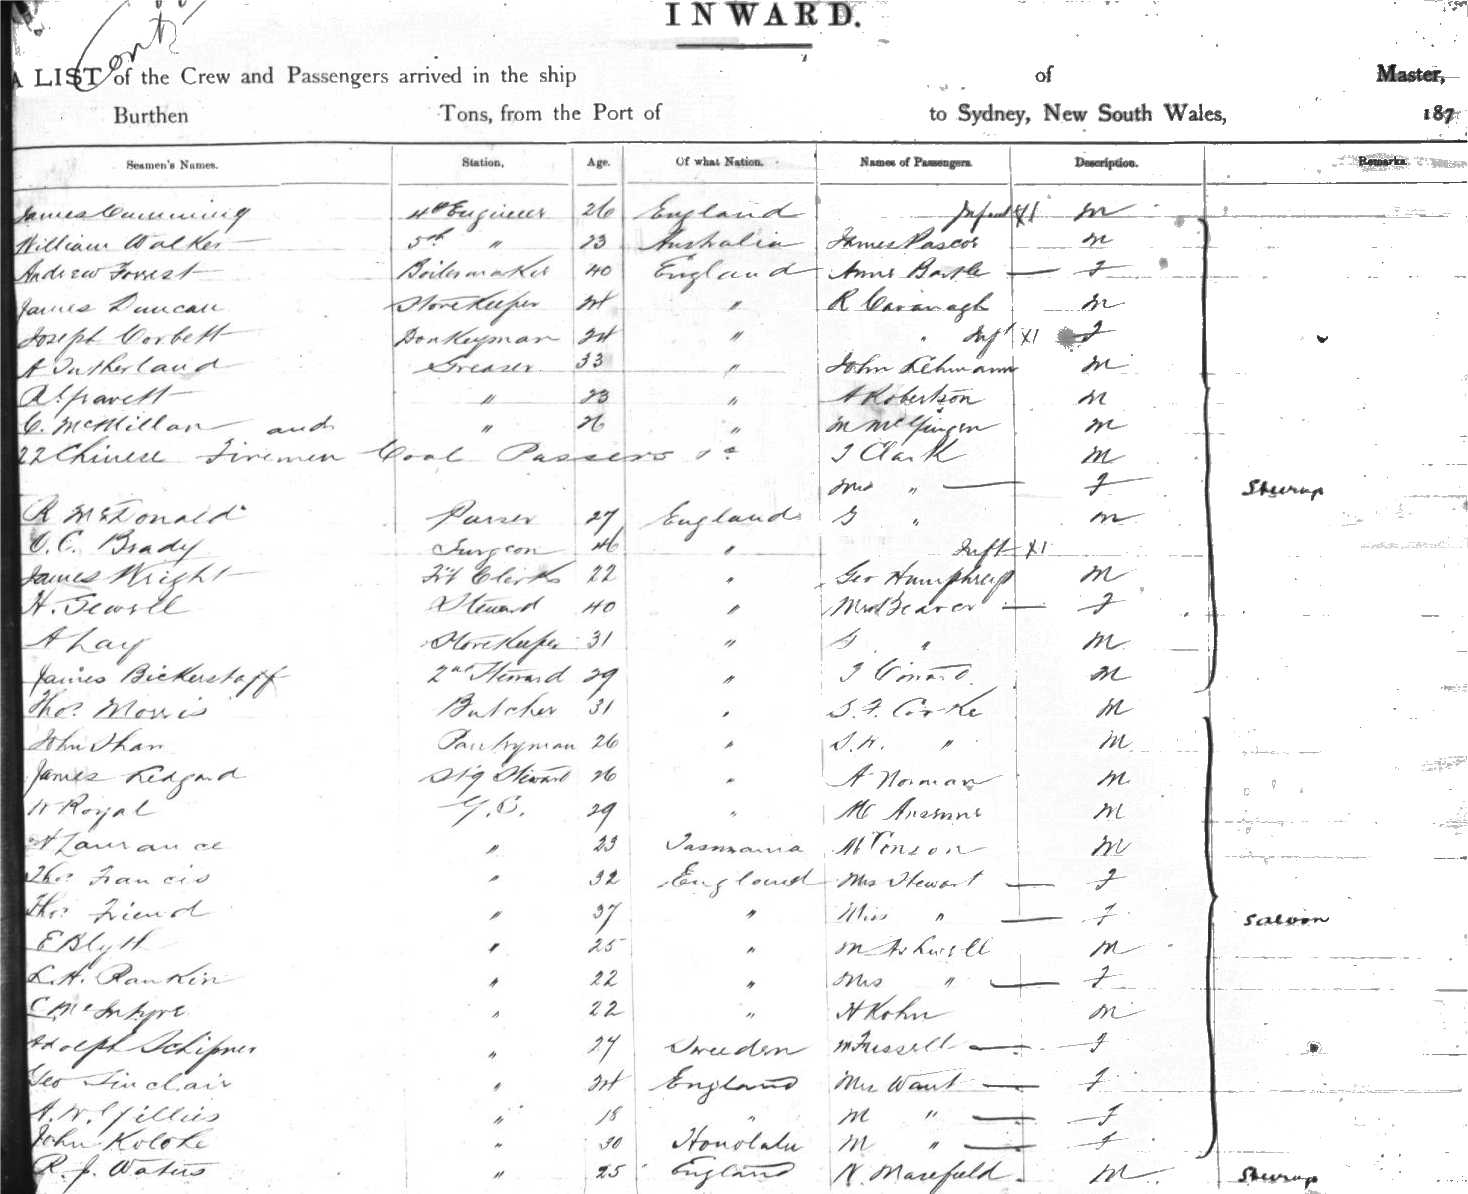 Contd
INWARD.
A LIST of the Crew and Passengers arrived in the ship of Master,
Burthen Tons, from the Port of to Sydney, New South Wales, 187
Seamen's Names. Station, Age. Of what Nation. Names of Passengers. Description. Remarks.
James Cumming 4th Engineer 26 England Infant X1 M
William Walker 5th " 23 Australia James Pascoe M
Andrew Forrest Boilermaker 40 England Anne Bartle F
James Duncan StoreKeeper 24 " R Cavanagh M
Joseph Corbett Donkeyman 24 " Inft X1 F
A Sutherland Greaser 33 " John Lehmann M
" 23 " A Robertson M
C. McMillan and " 26 " M M
22 Chinese Firemen Coal Passers &c T Clark M
Mrs " F Steerage
R McDonald Purser 27 England G " M
O. C. Brady Surgeon 46 " Inft X1
James Wright Frt Clerk 22 " Geo Humphreys M
H. Sewell Steward 40 " Mrs F
A Lay StoreKeeper 31 " G " M
James Bickerstaff 2nd Steward 29 " T M
Thos Morris Butcher 31 " S. F. Cooke M
John Shan Pantryman 26 " S. W. " M
James Ledgard Stg Steward 26 " A Norman M
W Royal G. S. 29 " M
A Laurance " 23 Tasmania M
Thos Francis " 32 England Mrs Stewart F
Thos Friend " 37 " Miss " F Saloon
E Blyth " 25 " M Ashwell M
L. H. Rankin " 22 " Mrs " F
C McIntyre " 22 " H Kohn M
Adolph Schipner " 27 Sweeden M Fussell F
Geo Sinclair " 24 England Mrs Want F
A. W. Gillies " 18 " M " F
John Koloke " 30 Honolulu M " F
R. J. Waters " 25 England N. Masefield M Steerage